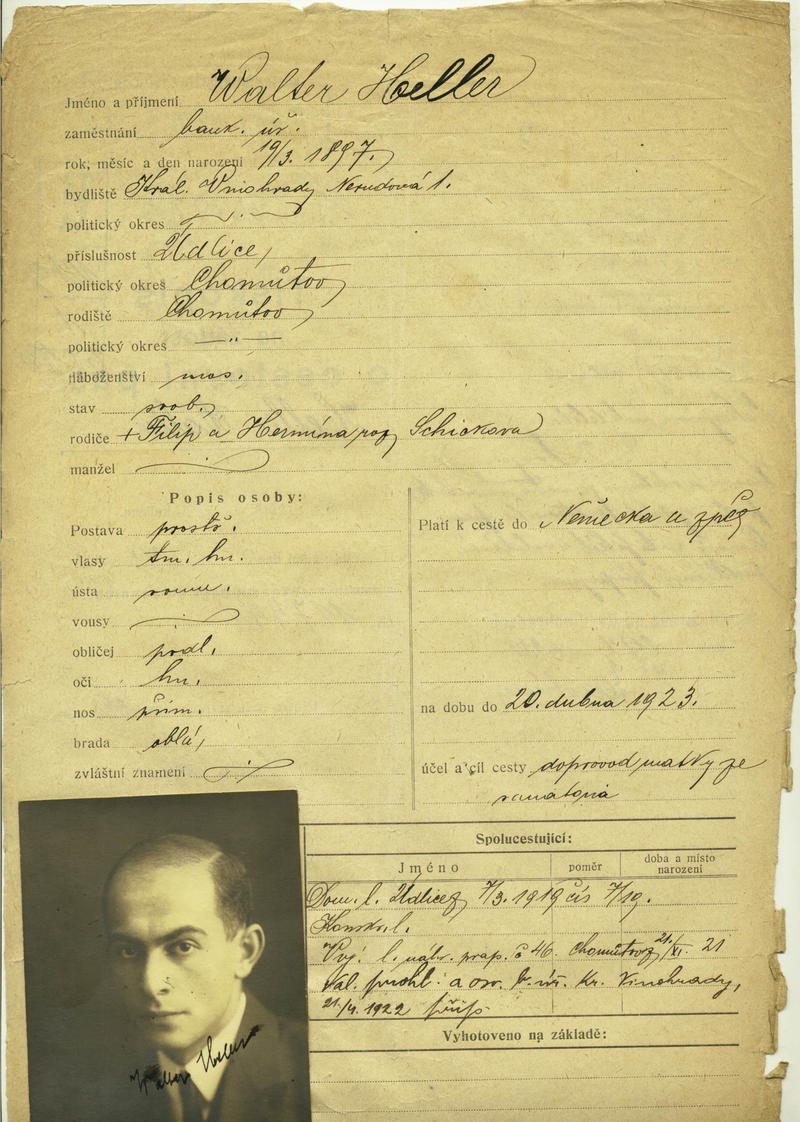 Jméno a příjmení Walter Heller
zaměstnání bank. úř.
rok, měsíc a den narození 19/3. 1897.
bydliště Král. Vinohrady Nerudová 1.
politický okres
příslušnost Údlice,
politický okres Chomůtov
rodiště Chomůtov
politický okres —"—
náboženství mos.
stav svob.
rodiče + Filip a Hermína roz. Schickova
manžel
Popis osoby:
Postava prostř.
vlasy tm. hn.
ústa soum.
vousy
obličej podl.
oči hn.
nos přim.
brada oblá,
zvláštní znamení
Platí k cestě do Německa a zpět
na dobu do 20. dubna 1923.
účel a cíl cesty doprovod matky ze
sanatoria
Spolucestující:
Jméno poměr doba a místo narození
Dom. l. Údlice 7/3. 1919 čís 7/19.
l.
l. náhr. prap. č 46. Chomůtov 21/XI. 21
Val. prohl. a os. b. úř. Kr. Vinohrady,
21/4. 1922
Vyhotoveno na základě:
Walter Heller